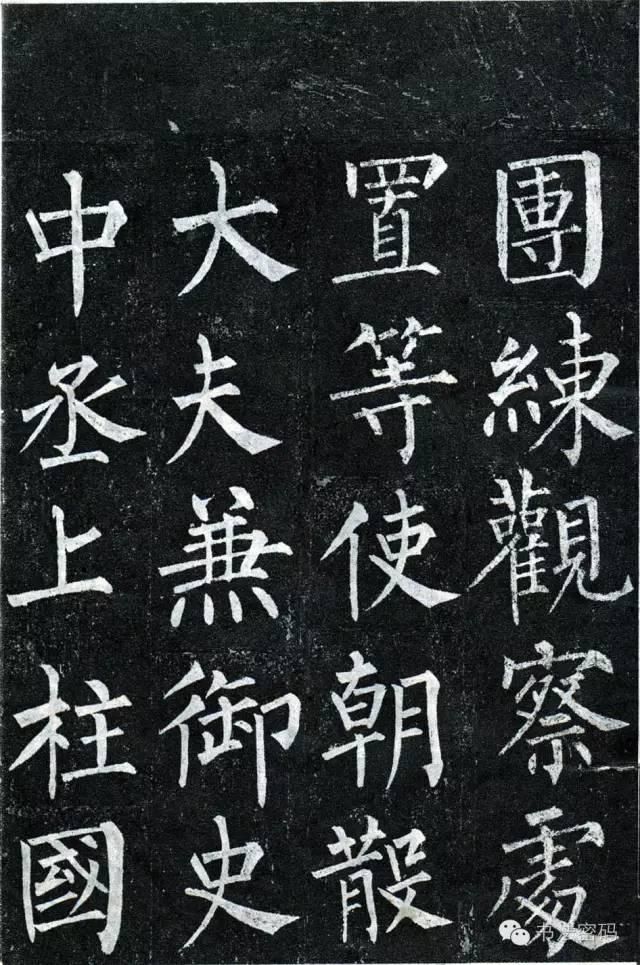 團練觀察處
置等使朝散
大夫兼御史
中丞上柱國
书法密码